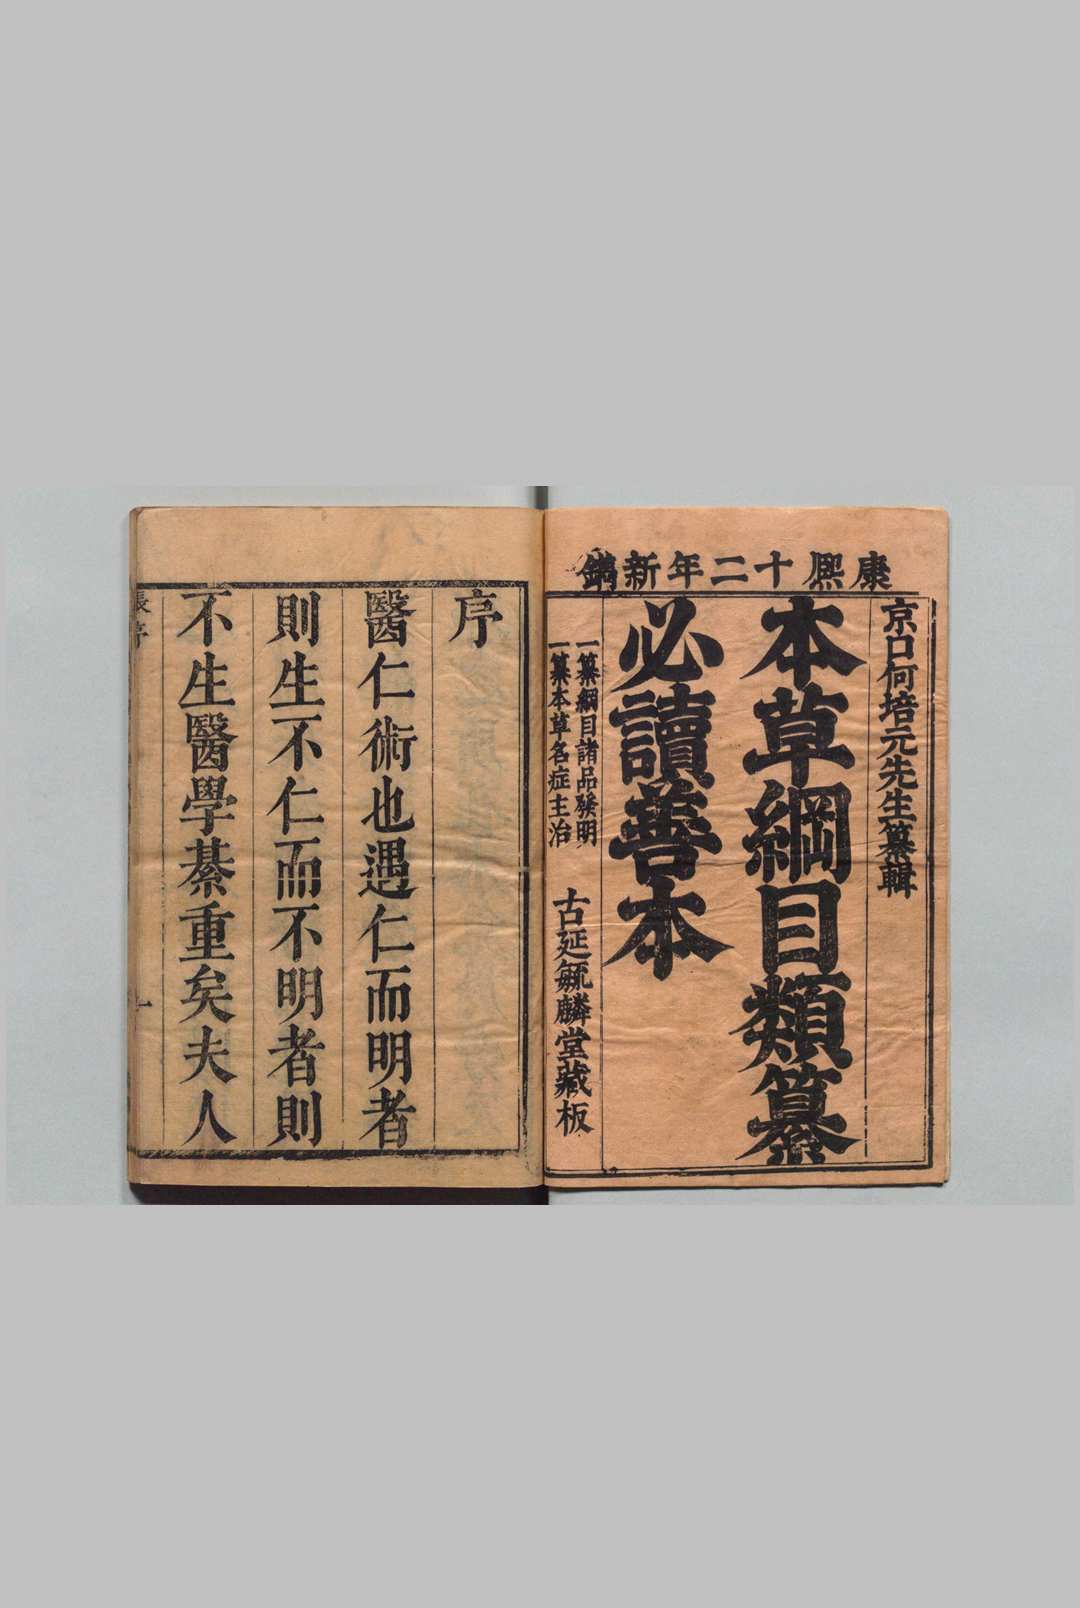 康熈十二年新鐫
京口何培元先生纂輯
本草綱目類纂
必讀善本
一纂綱目諸品發明
一纂本草名症主治
古延毓麟堂藏板
序
醫仁術也遇仁而明者
則生不仁而不明者則
不生醫學綦重矣夫人
張序
一